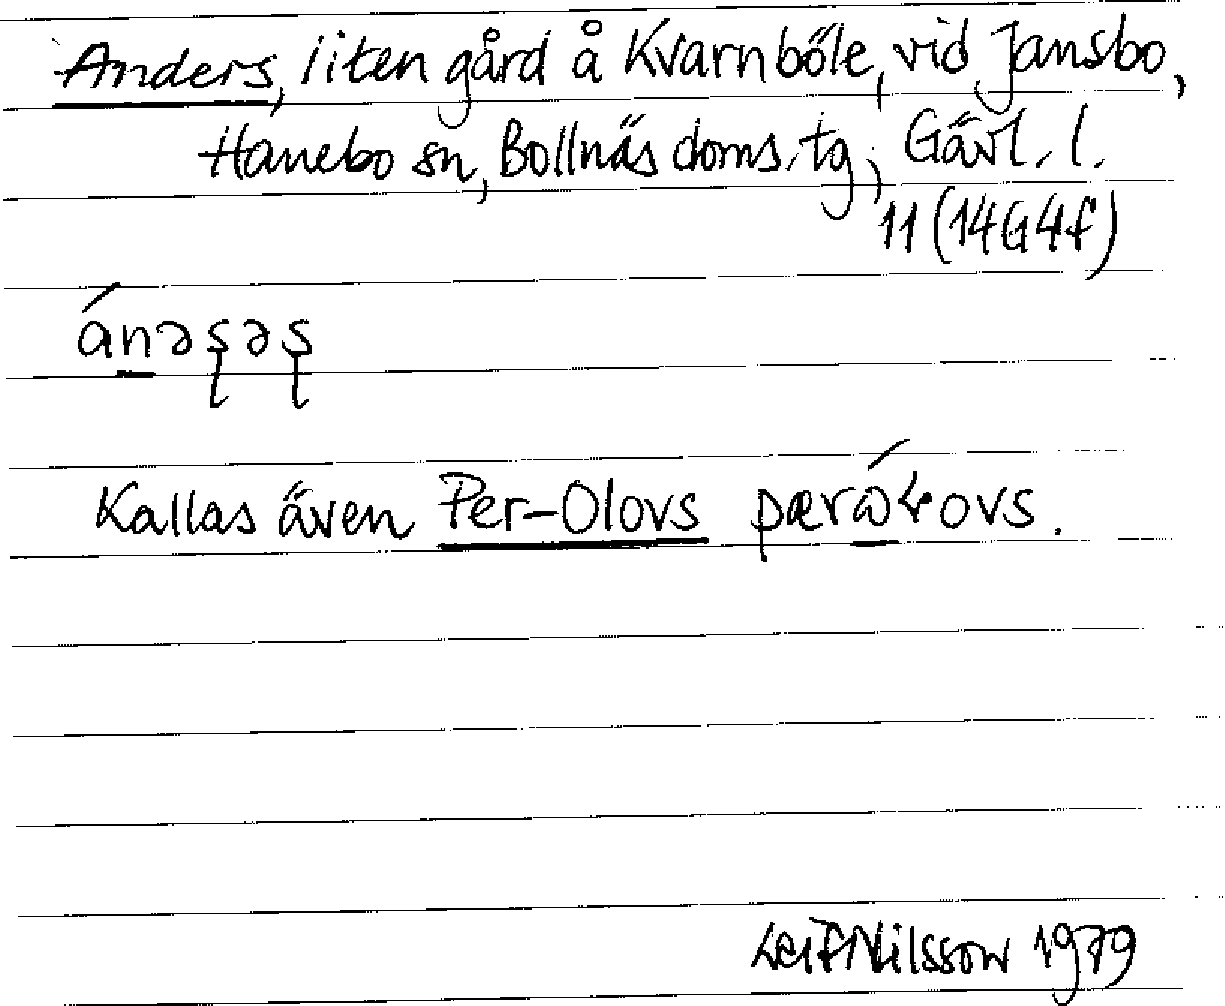 Anders, liten gård å Kvarnböle, vid Jansbo,
Hanebo sn, Bollnäs doms. tg, Gävl. l.
11 (14G4f)
ánəʂəʂ
Kallas även Per-Olovs pærώɽovs.
Leif Nilsson 1979